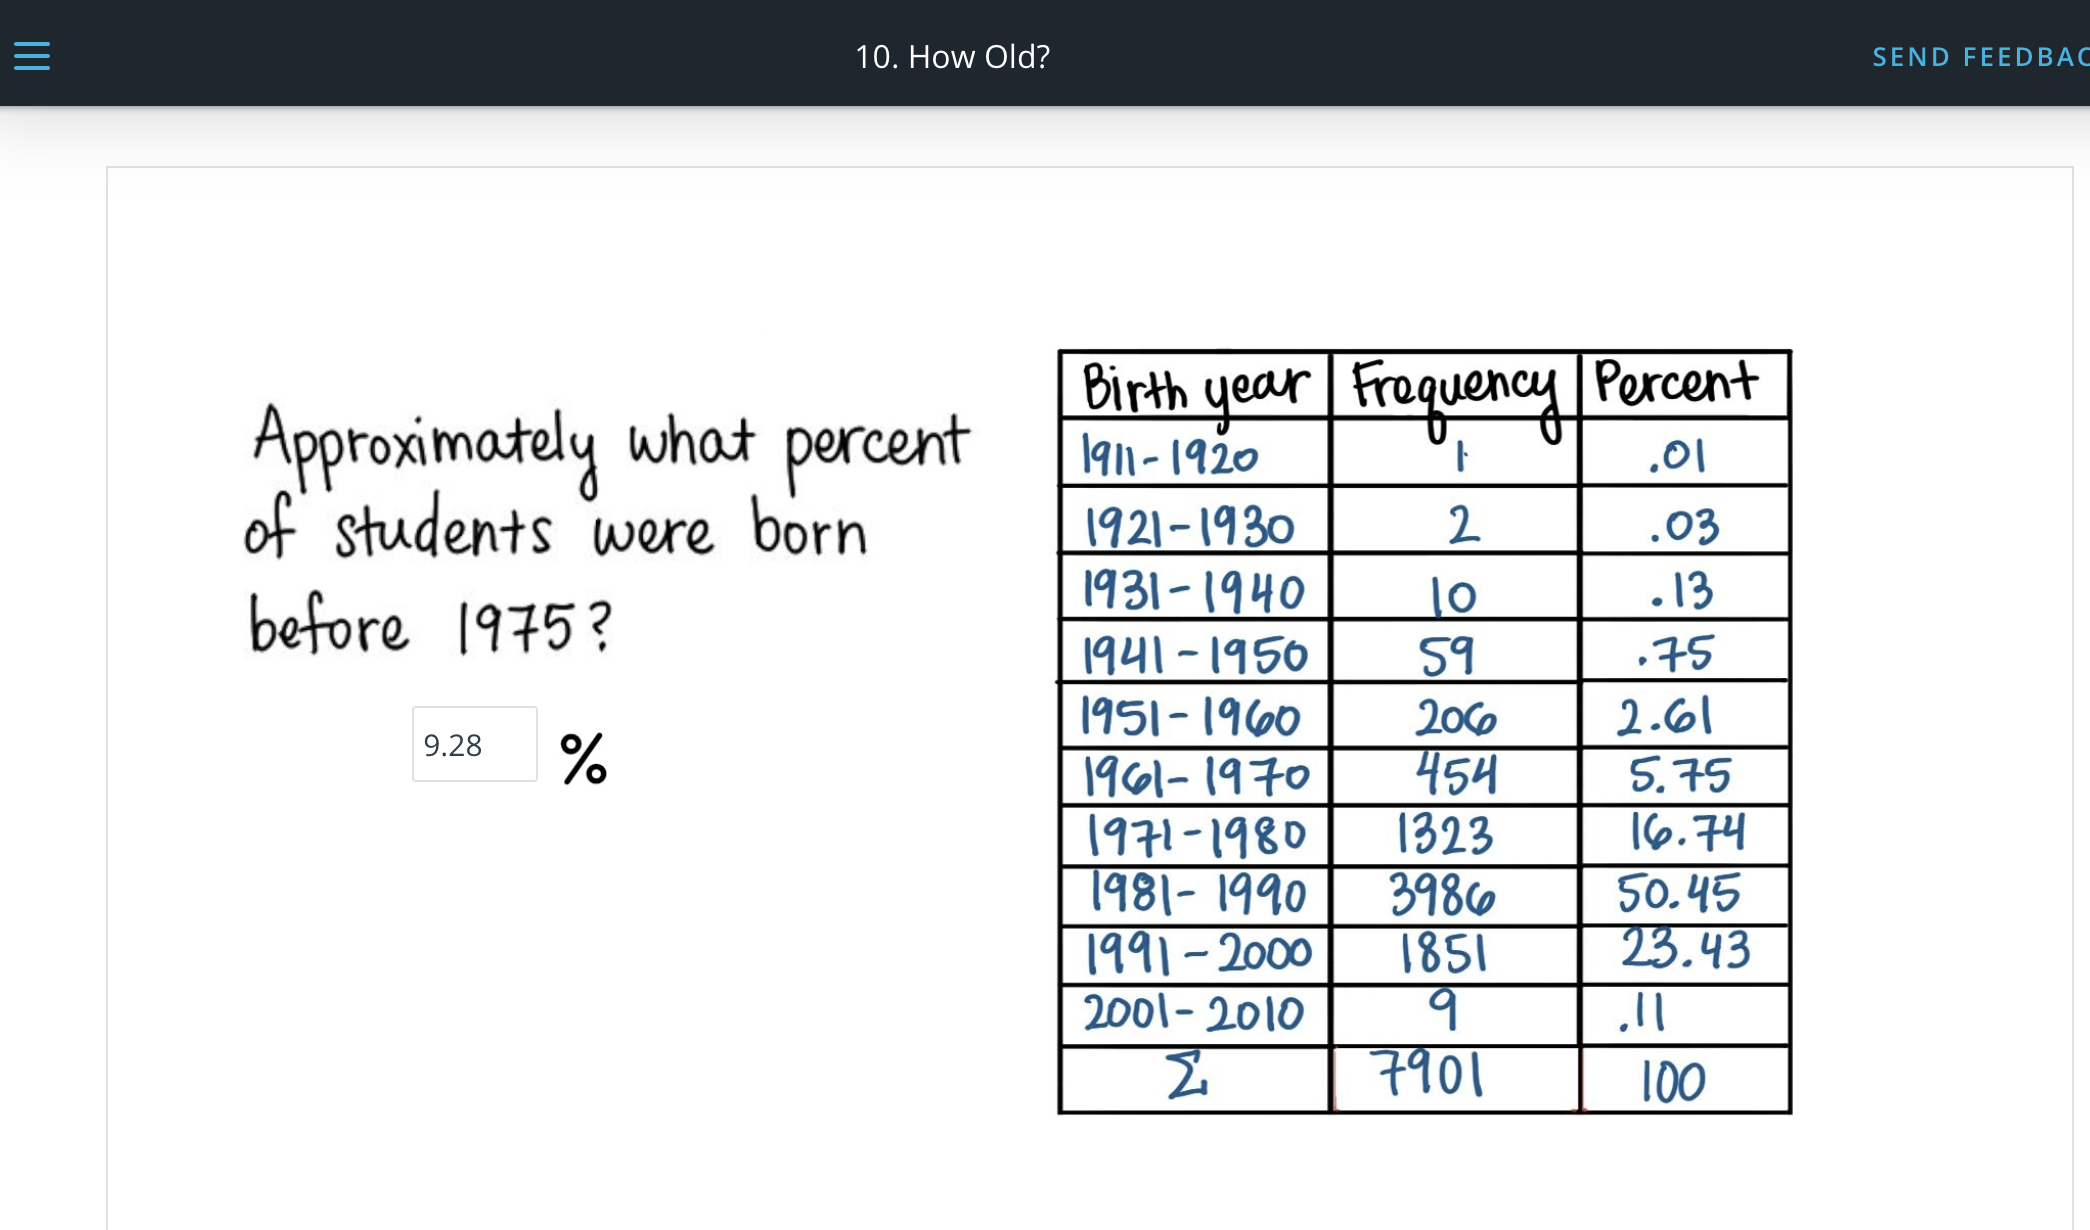 10. How Old?
SEND FEEDBAC
Approximately what percent
of students were born
before 1975?
9.28 %
Birth year Frequency Percent
1911-1920 1 .01
1921-1930 2 .03
1931-1940 10 .13
1941-1950 59 .75
1951-1960 206 2.61
1961-1970 454 5.75
1971-1980 1323 16.74
1981-1990 3986 50.45
1991-2000 1851 23.43
2001-2010 9 .11
Σ 7901 100